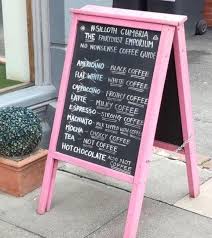 #SILLOTH CUMBRIA
THE FAIRYDUST EMPORIUM
NO NONSENSE COFFEE GUIDE
AMERICANO - BLACK COFFEE
FLAT WHITE - WHITE COFFEE
CAPPUCCINO - FROTHY COFFEE
LATTE - MILKY COFFEE
ESPRESSO - STRONG COFFEE
MACHIATO - MILK TOPPED WITH COFFEE
MOCHA - CHOCCY COFFEE
TEA - NOT COFFEE
HOT CHOCOLATE - ALSO NOT COFFEE